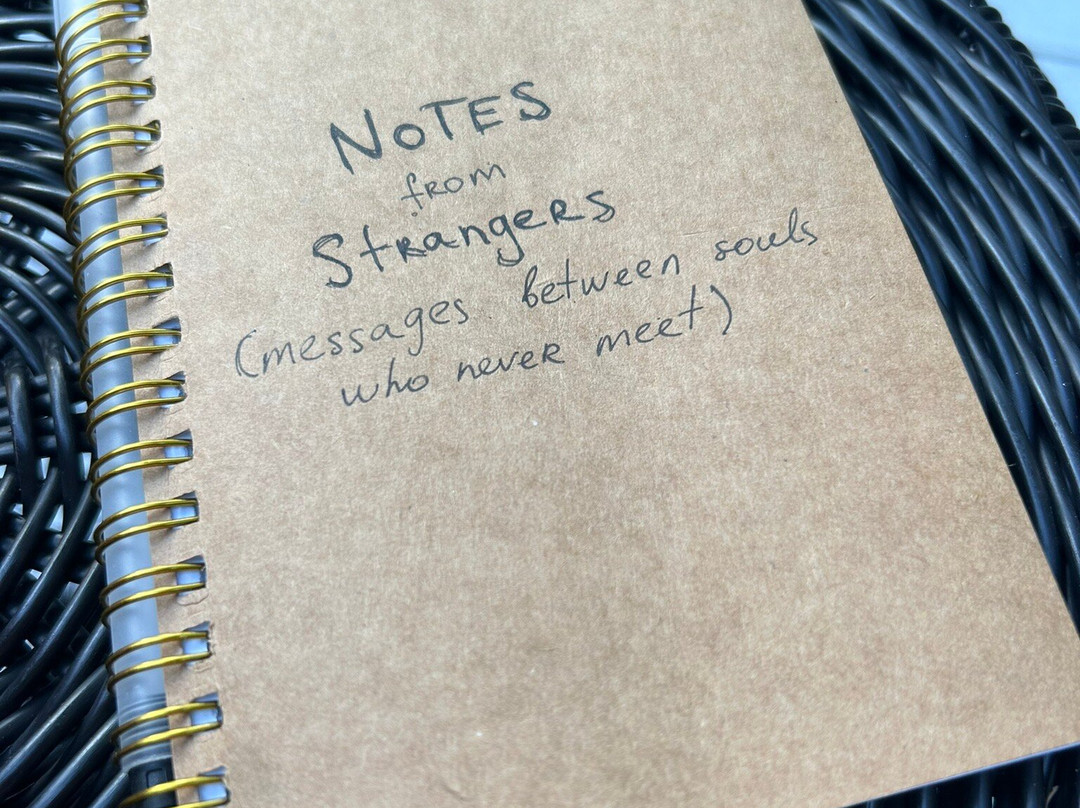 NOTES
from
Strangers
(messages between souls
who never meet)